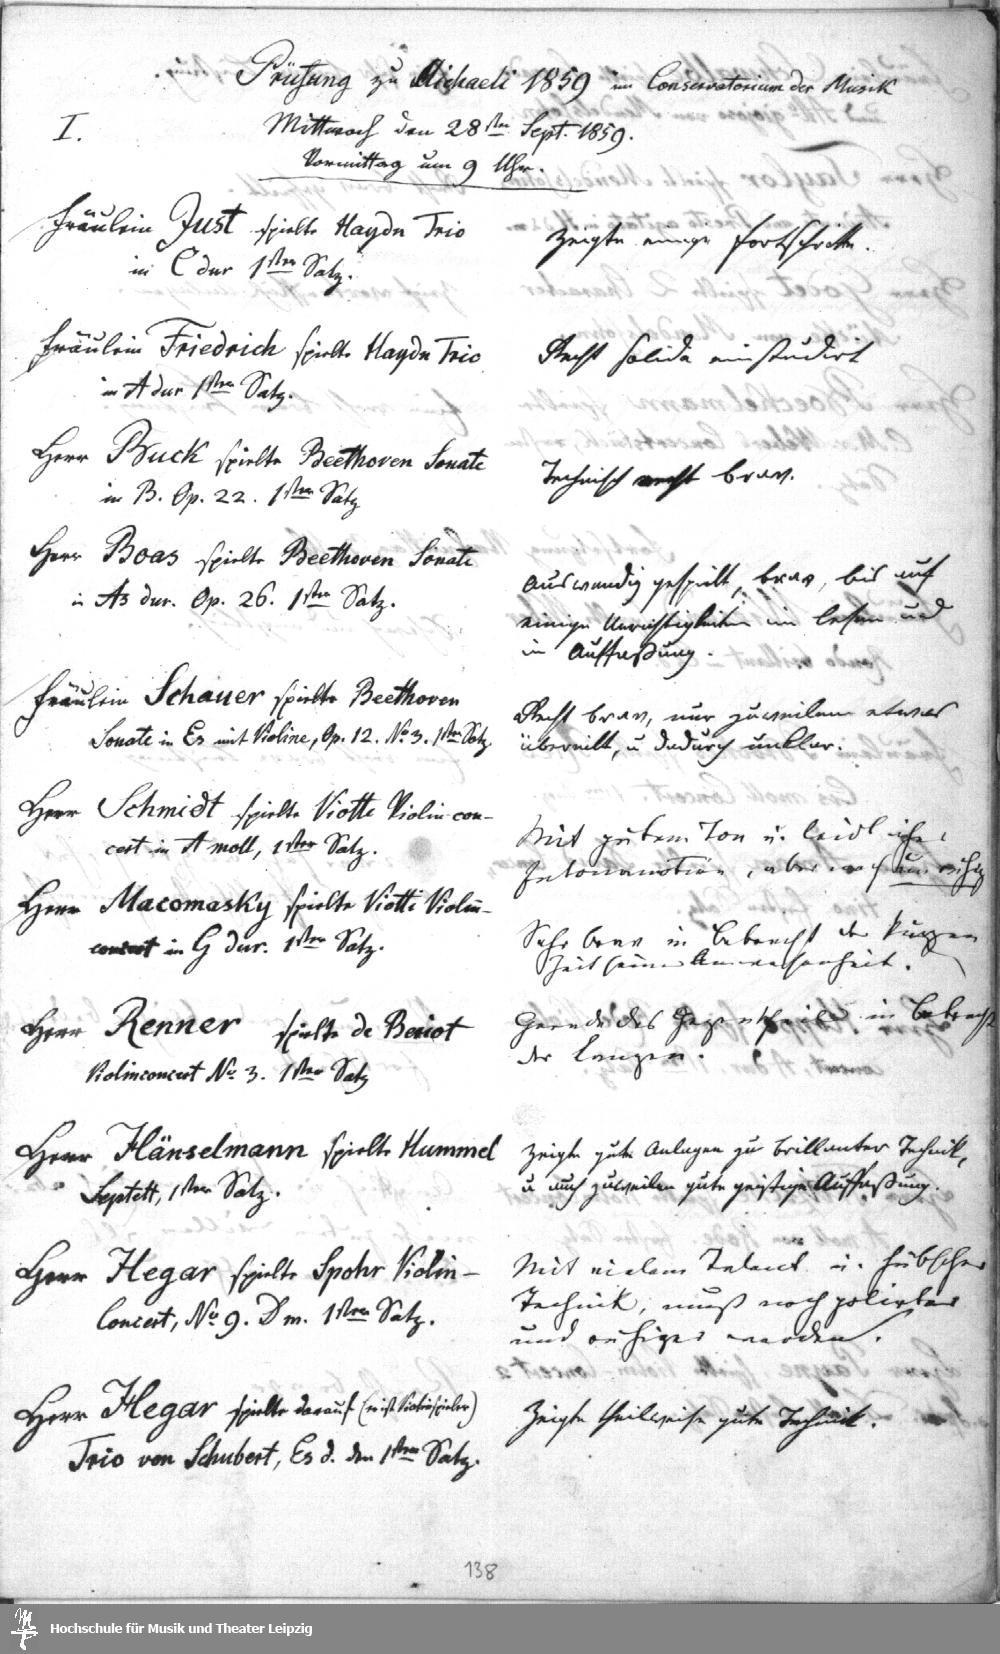 Prüfung zu Michaeli 1859 im Conservatorium der Musik
I.
Mittwoch den 28sten Sept. 1859.
Vormittag um 9 Uhr.
Fräulein Just spielte Haydn Trio
in C dur 1ster Satz.
zeigte einige Fortschritte.
Fräulein Friedrich spielte Haydn Trio
in A dur 1ster Satz.
Recht solide einstudirt
Herr Bruck spielte Beethoven Sonate
in B. Op. 22. 1ster Satz
Technisch recht brav.
Herr Boas spielte Beethoven Sonate
in As dur. Op. 26. 1ster Satz.
Auswendig gespielt, brav, bis auf
einige Unrichtigkeiten im lesen und
in Auffaßung.
Fräulein Schauer spielte Beethoven
Sonate in Es mit Violine, Op. 12. No 3. 1ster Satz.
Recht brav, nur zuweilen etwas
übereilt, u dadurch unklar.
Herr Schmidt spielte Viotti Violin con-
cert in A moll, 1ster Satz.
Mit gutem Ton u. leidlicher
Intonation, aber noch unruhig
Herr Macomasky spielte Viotti Violin-
concert in G dur. 1ster Satz.
Sehr brav in betracht der kurzen
Zeit seiner Anwesenheit.
Herr Renner spielte de Beriot
Violinconcert No 3. 1ster Satz
Gerade das Gegentheil in betracht
der langen.
Herr Hänselmann spielte Hummel
Septett, 1ster Satz.
zeigte gute Anlagen zu brillanter Technik,
u auch zuweilen gute geistige Auffaßung.
Herr Hegar spielte Spohr Violin-
Concert, No 9. D m. 1ster Satz.
Mit vielem Talent u. hübscher
Technik, muß noch polirter
und ruhiger werden.
Herr Hegar spielte darauf (ist Violinspieler)
Trio von Schubert, Es d. den 1sten Satz.
Zeigte theilweise gute Technik.
138
Hochschule für Musik und Theater Leipzig